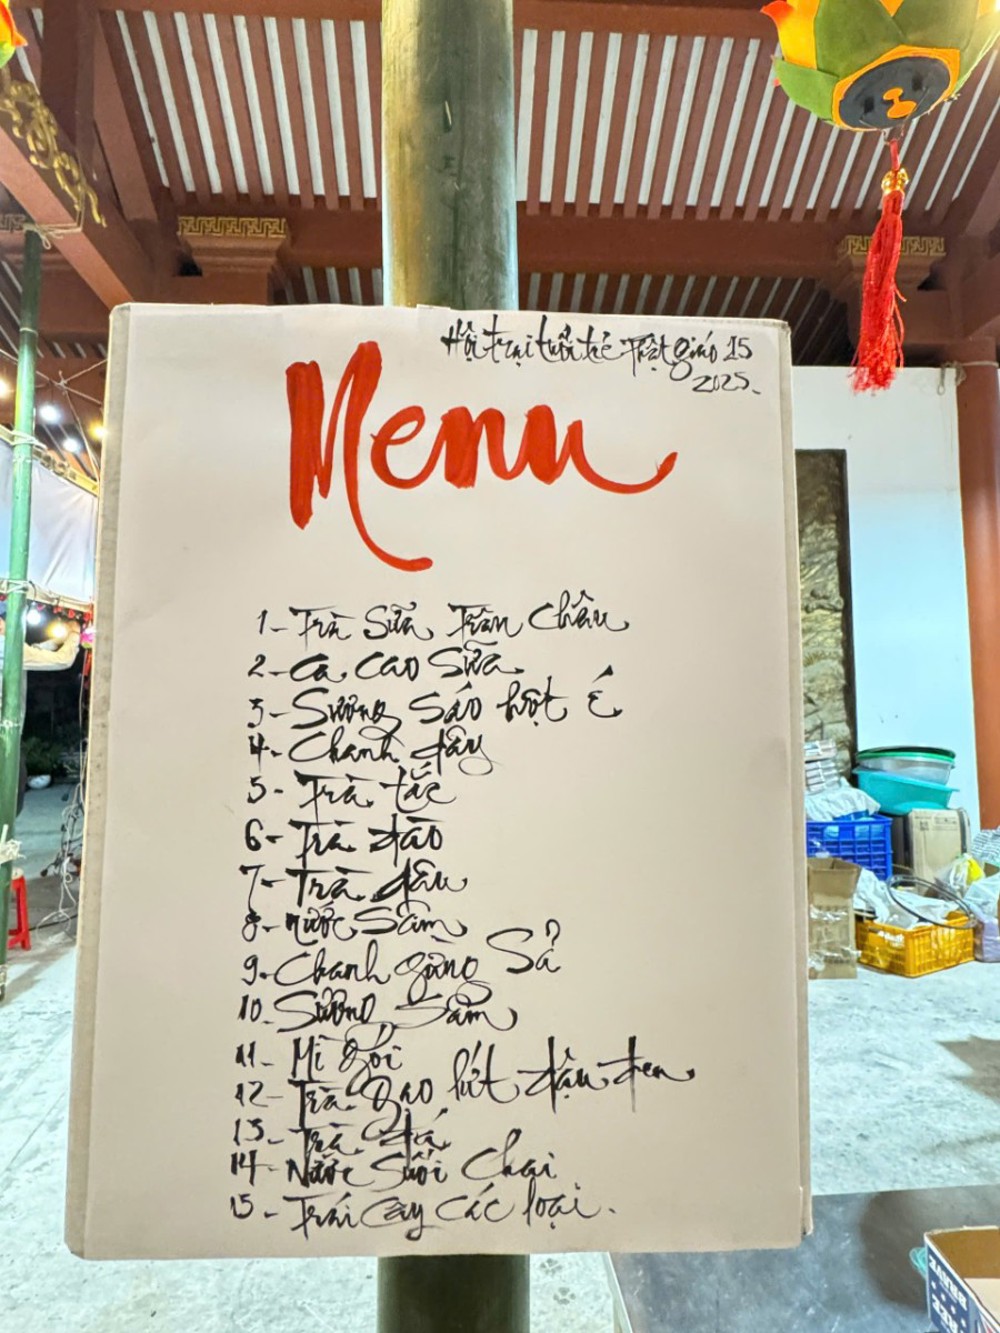 Hội trại tuổi trẻ Phật giáo 15
2025.
Menu
1- Trà Sữa Trân Châu
2- Ca Cao Sữa
3- Sương Sáo hột é
4- Chanh dây
5- Trà tắc
6- Trà đào
7- Trà dâu
8- Nước Sâm
9- Chanh gừng Sả
10. Sương Sâm
11- Mì gói
12- Trà Gạo lứt đậu đen
13- Trà đá
14- Nước Suối Chai
15- Trái Cây Các loại.